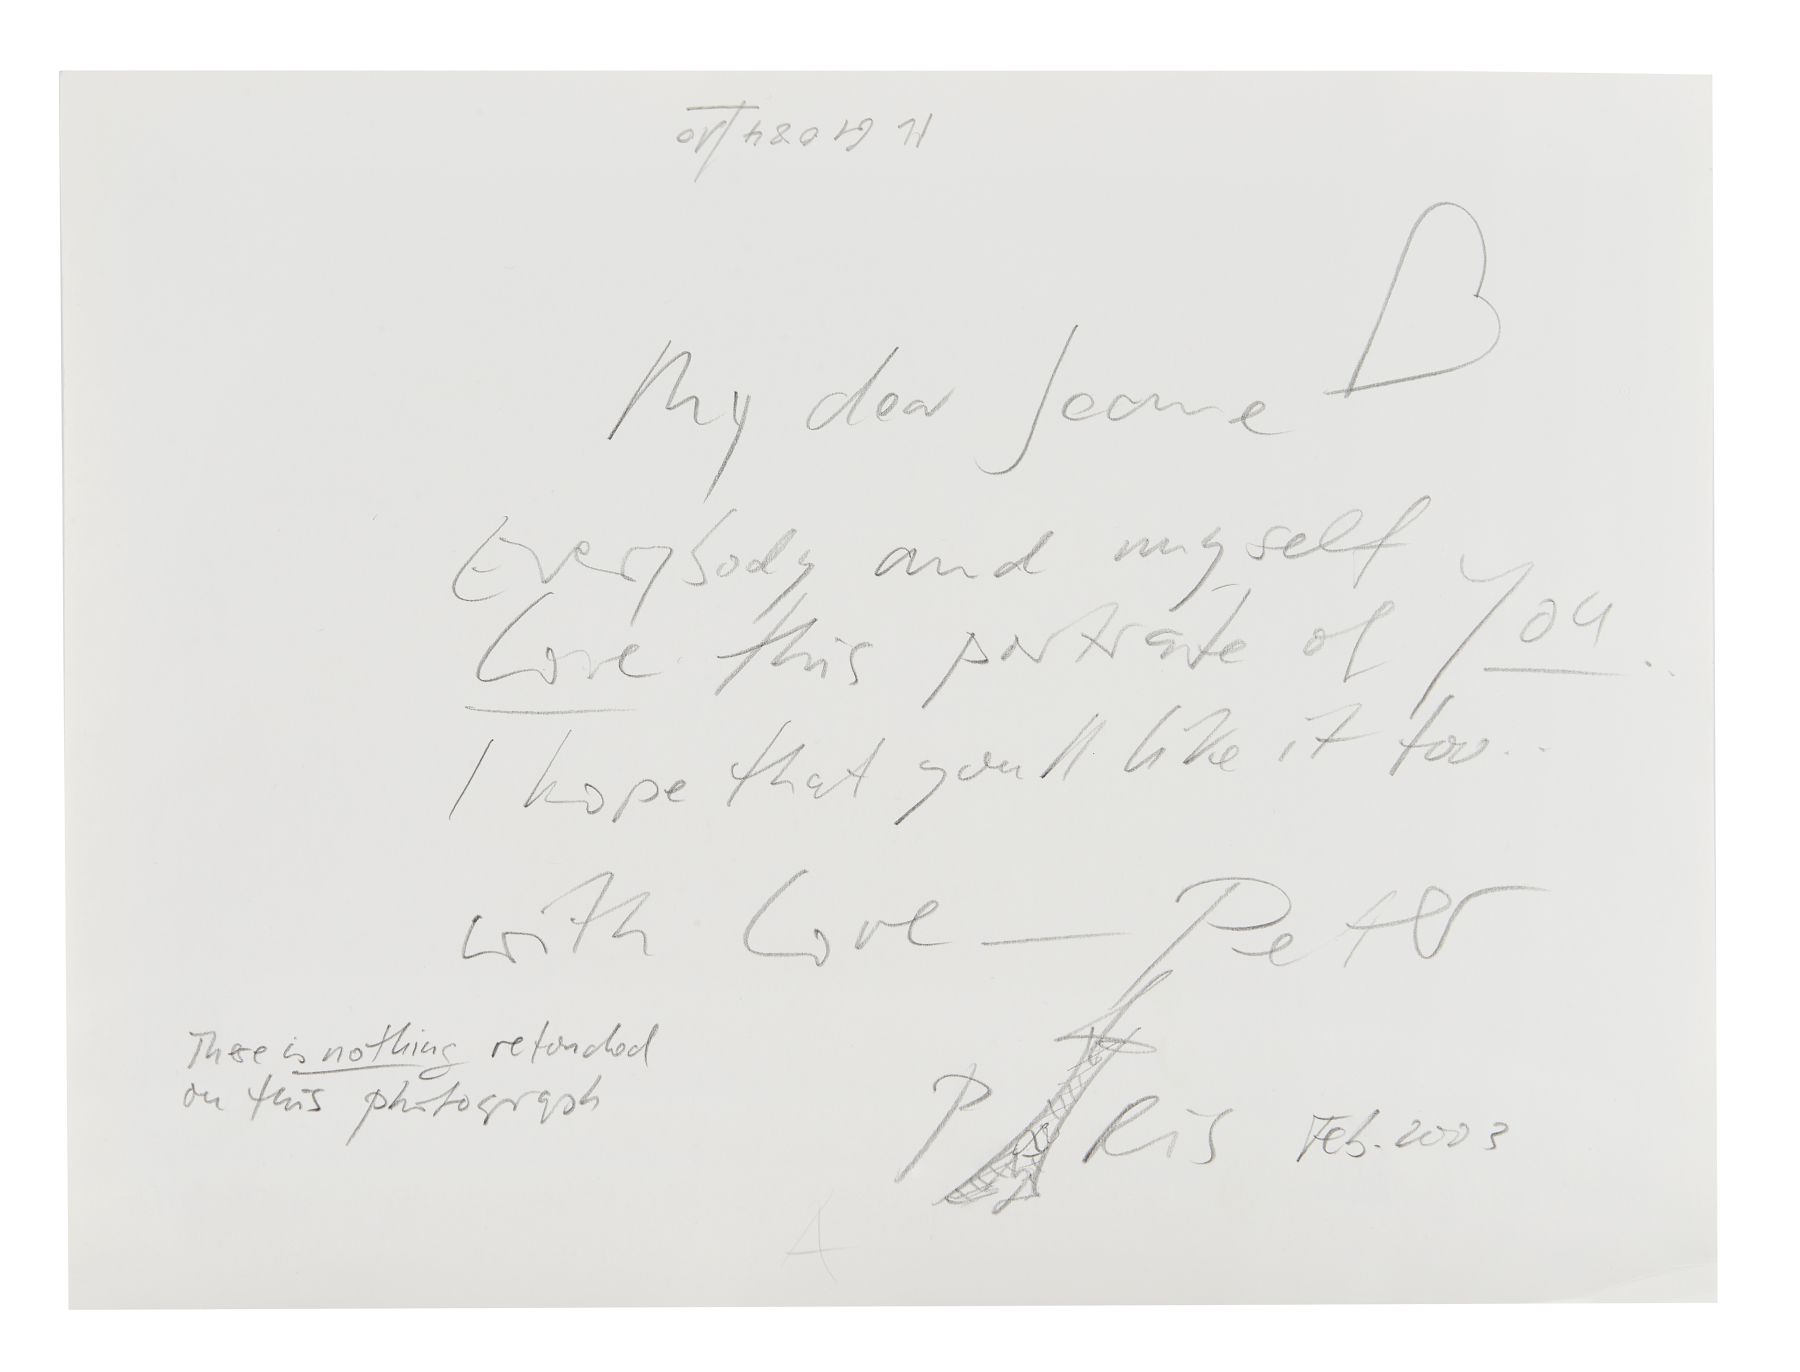 My dear Jeanne
Everybody and myself
Love this portrate of You..
I hope that you'll like it too...
with Love — Peter
There is nothing retouched
on this photograph
PARis Feb. 2003